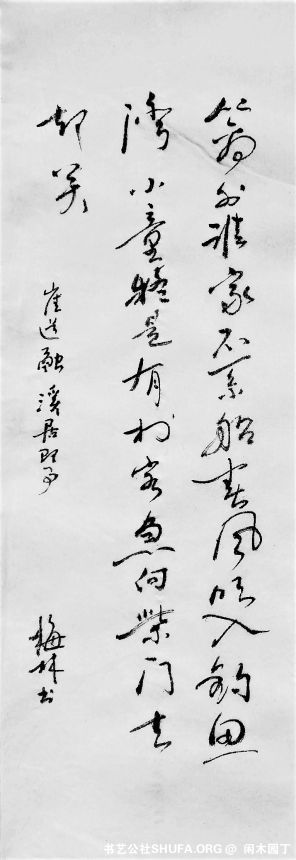 篱外谁家不系船春风吹入钓鱼
湾小童疑是有村客急向柴门去
却关
崔道融溪居即事
梅林书
书艺公社SHUFA.ORG @ 闲木园丁